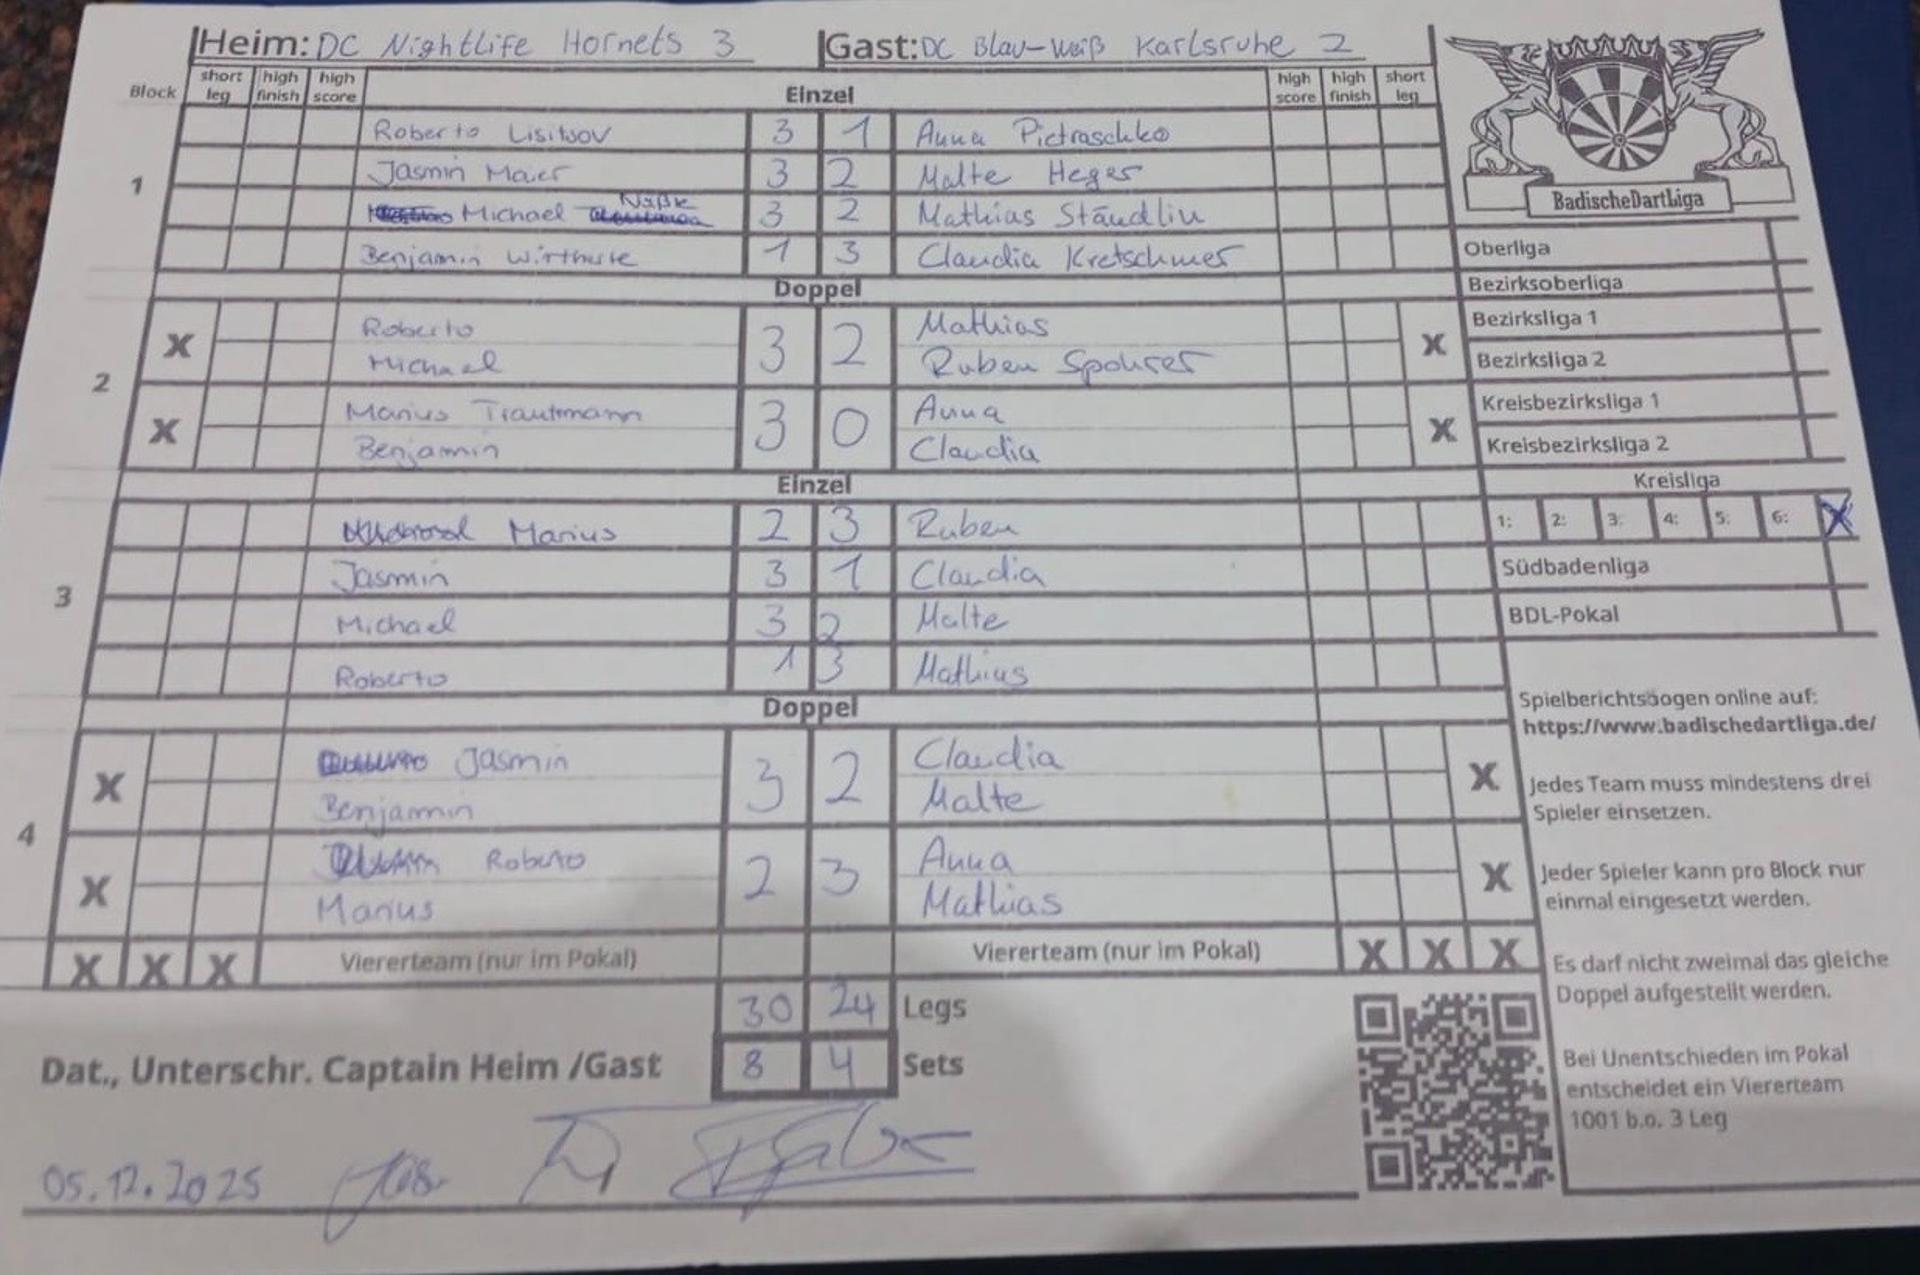 Heim: DC Nightlife Hornets 3 Gast: DC Blau-Weiß Karlsruhe 2
Block short leg high finish high score Einzel high score high finish short leg
1
Roberto Lisitsov 3 1 Anna Pietraschko
Jasmin Maier 3 2 Malte Heger
Michael Näßle 3 2 Mathias Ständlin
Benjamin Wirthwte 1 3 Claudia Kretschmer
Doppel
2
X Roberto Michael 3 2 Mathias Ruben Spohrer X
X Marius Trautmann Benjamin 3 0 Anna Claudia X
Einzel
3
Marius 2 3 Ruben
Jasmin 3 1 Claudia
Michael 3 2 Malte
Roberto 1 3 Mathias
Doppel
4
X Jasmin Benjamin 3 2 Claudia Malte X
X Roberto Marius 2 3 Anna Mathias X
X X X Viererteam (nur im Pokal) Viererteam (nur im Pokal) X X X
30 24 Legs
Dat., Unterschr. Captain Heim /Gast 8 4 Sets
05.12.2025
BadischeDartLiga
Oberliga
Bezirksoberliga
Bezirksliga 1
Bezirksliga 2
Kreisbezirksliga 1
Kreisbezirksliga 2
Kreisliga
1: 2: 3: 4: 5: 6: X
Südbadenliga
BDL-Pokal
Spielberichtsbögen online auf:
https://www.badischedartliga.de/
Jedes Team muss mindestens drei
Spieler einsetzen.
Jeder Spieler kann pro Block nur
einmal eingesetzt werden.
Es darf nicht zweimal das gleiche
Doppel aufgestellt werden.
Bei Unentschieden im Pokal
entscheidet ein Viererteam
1001 b.o. 3 Leg